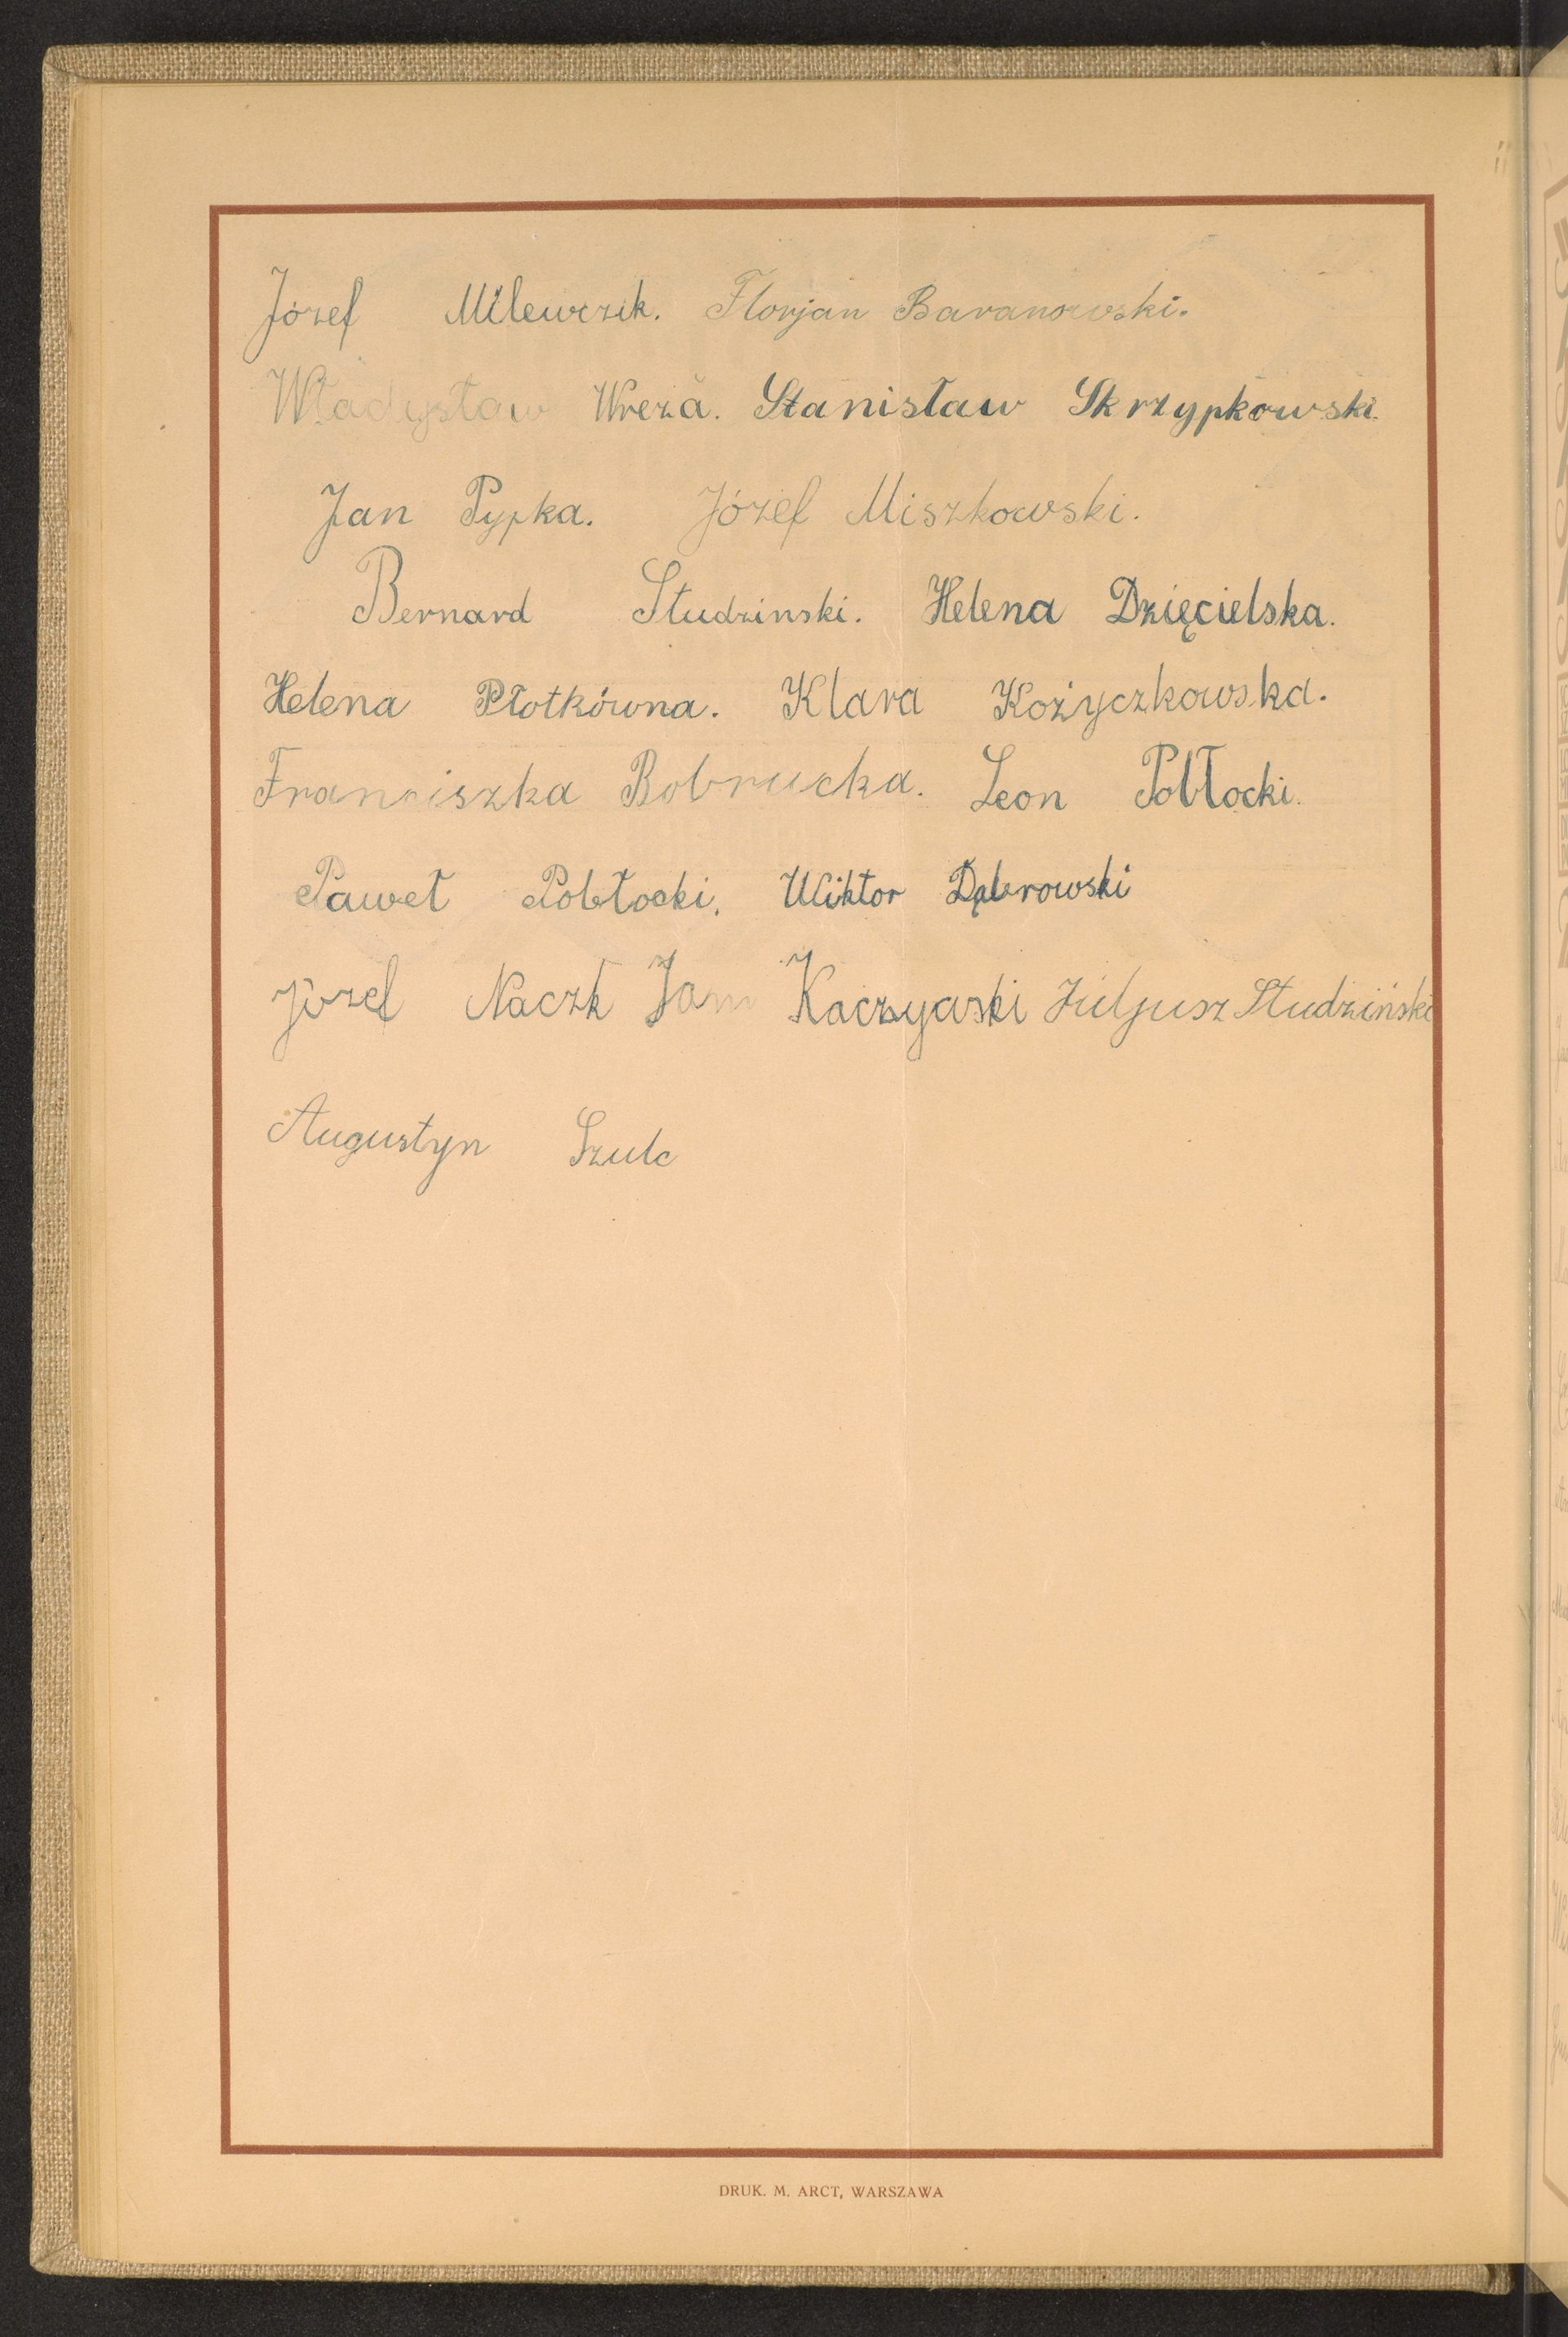 Józef Milewczik. Florjan Baranowski.
Władysław Wreza. Stanisław Skrzypkowski.
Jan Pypka. Józef Miszkowski.
Bernard Studzinski. Helena Dzięcielska.
Helena Płotkówna. Klara Kożyczkowska.
Franciszka Bobrucka. Leon Pobłocki.
Paweł Pobłocki. Wiktor Dąbrowski
Józef Naczk Jan Juljusz Studziński
Augustyn Szulc
DRUK. M. ARCT, WARSZAWA